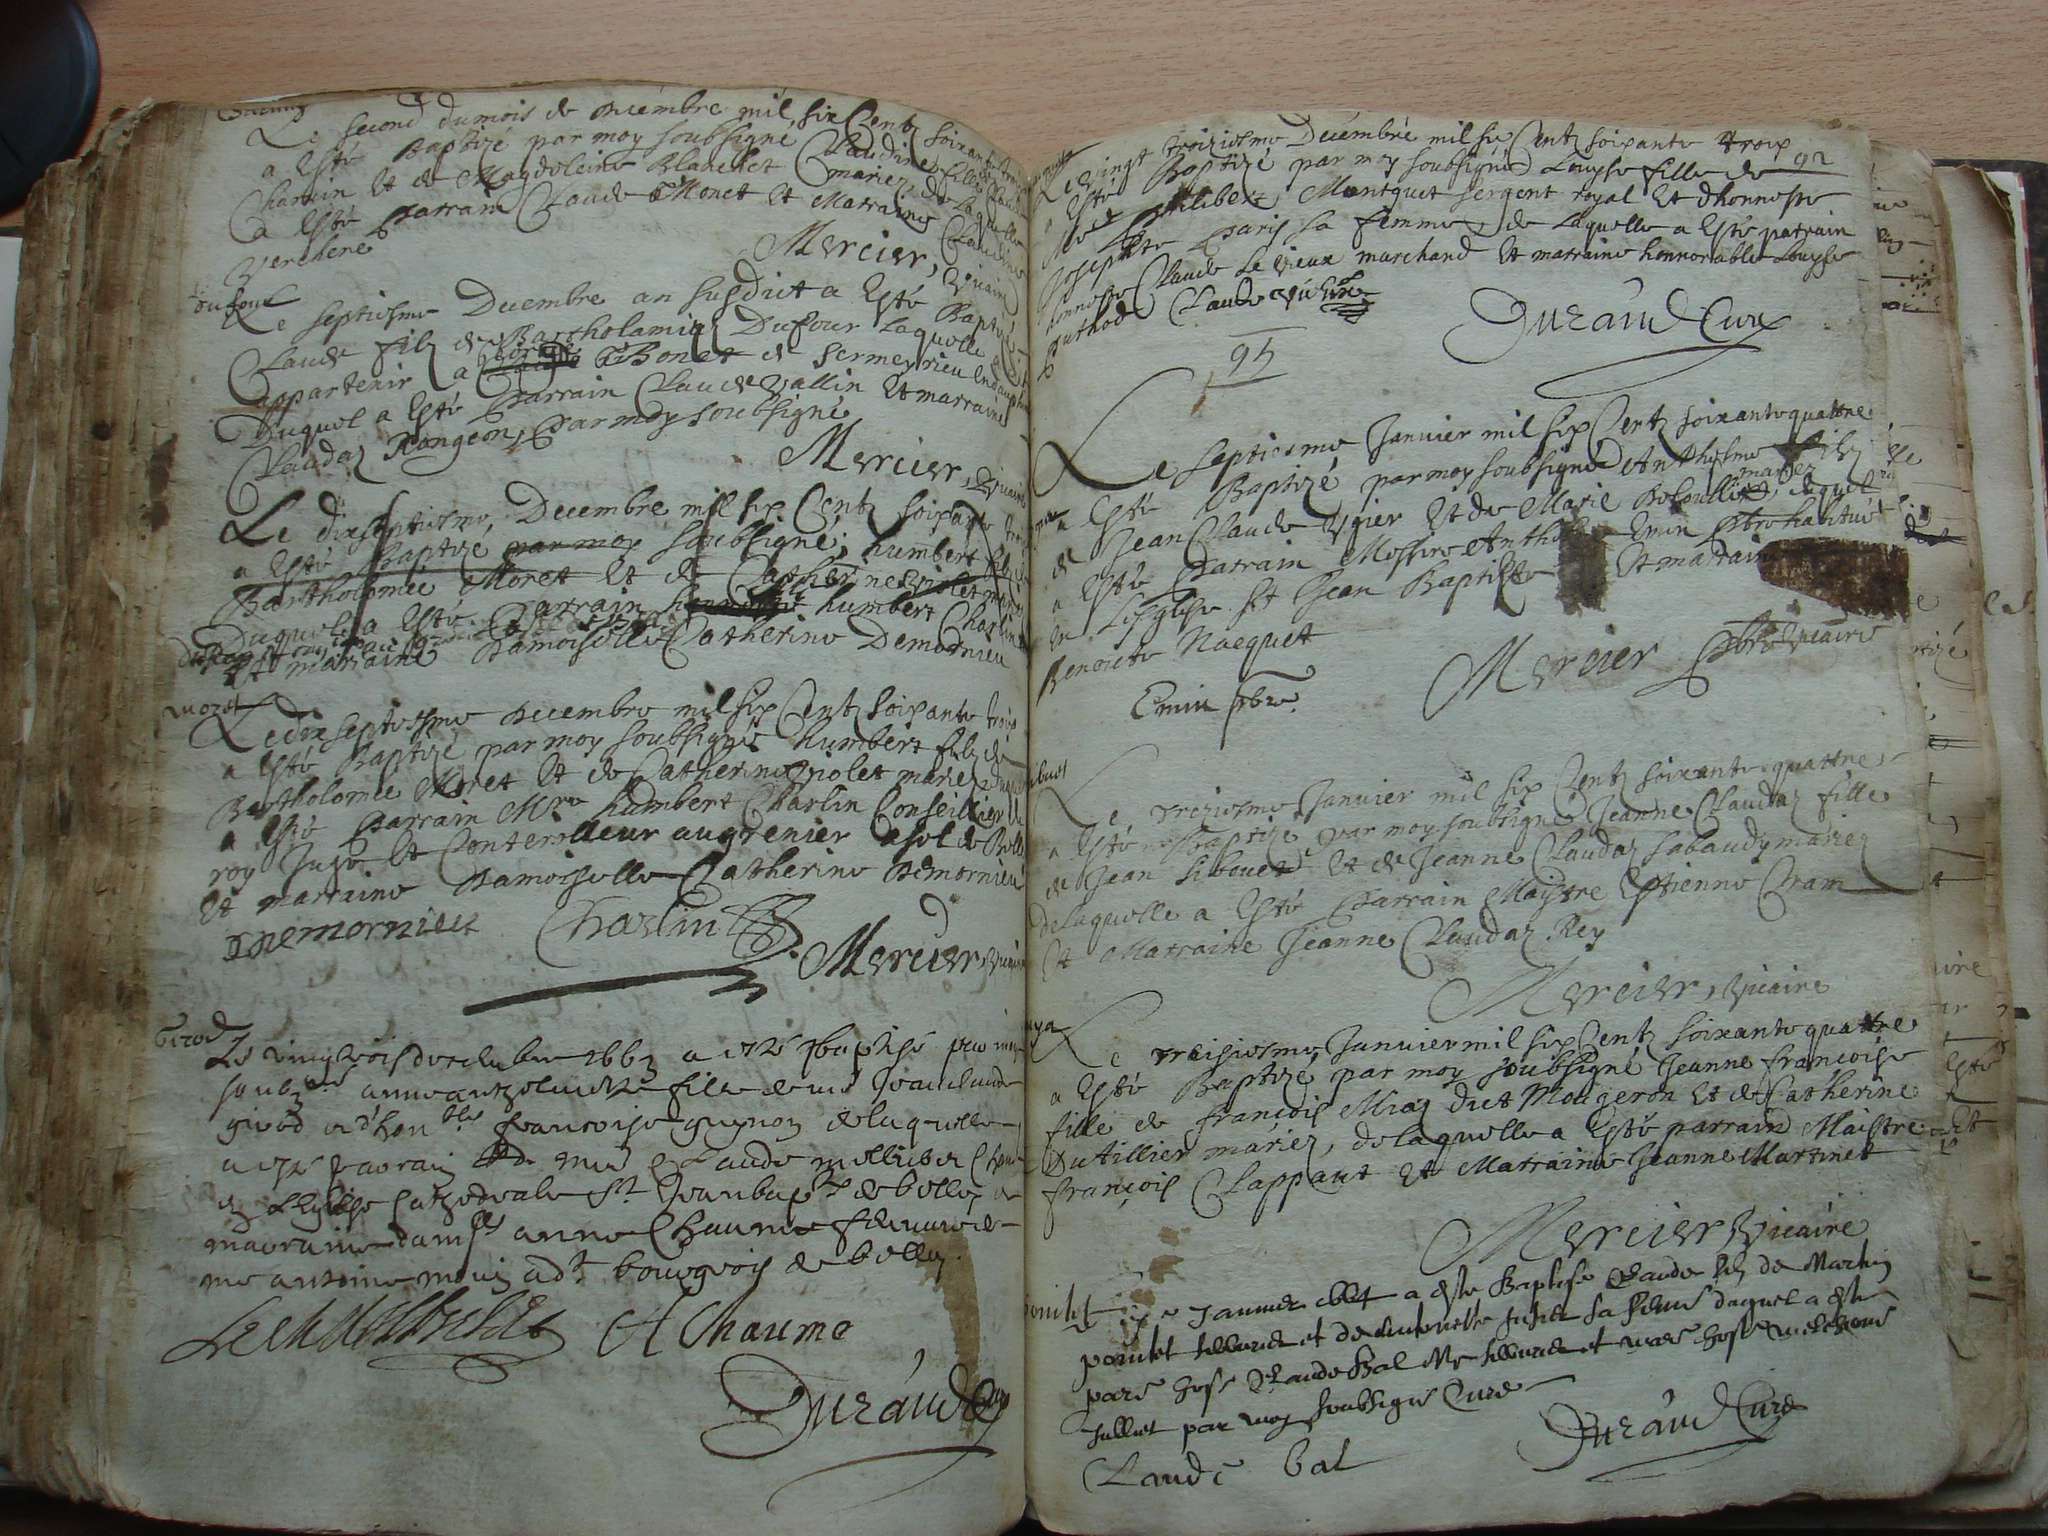 Le second du mois de Decembre mil six Centz soixante trois
a esté Baptizé par moy soubsigné Claudine fille de Claude
Charlin et de Magdeleine Blanchet mariez, de laquelle
a esté Parrain Claude Monet et Marraine Claudine
Verchere
Mercier, Vicaire
dufour
Le septiesme Decembre an susdict a esté Baptizé
Claude filz de Bartholamie Dufour laquelle a dict
appartenir a Bonet de Sermeyrieu en dauphiné
Duquel a esté Parrain Claude Vallin et marraine
Claudaz Rongeon, Par moy soubsigné
Mercier, Vicaire
Le dixseptiesme, Decembre mil six Centz soixante trois
a esté Baptizé par moy soubsigné, humbert filz de
Bartholomée Moret et de Catherine Violet mariez
Duquel a esté Parrain humbert Charlin
et marraine Damoiselle Catherine Demornieu
moret
Le dixseptiesme Decembre mil six Centz soixante trois
a esté Baptizé par moy soubsigné humbert filz de
Bartholomée Moret et de Catherine Violet mariez duquel
a esté Parrain Mre humbert Charlin Conseillier du
roy Juge et Conterolleur au grenier a sel de Belley
et marraine Damoiselle Catherine Demornieu
Demornieu Charlin
Mercier Vicaire
Girod
Le vingtrois decembre 1663 a esté baptisé par moy
soubzné anne anthelmette fille de me Jean claude
girod et d'honble francoise guynon de laquelle
a esté parrain me Claude
en L'Eglise Cathedrale St Jean bapte de belley et
marraine damlle anne Chaume femme de
me antoine adt bourgeois de belley.
A Chaume
Durand Curé
92
Le vingt troiziesme Decembre mil six Centz soixante trois
a esté Baptizé par moy soubsigné Louyse fille de
Me Philibert Montquet sergent royal et d'honneste
Josephte Paris sa femme, de laquelle a esté parrain
honneste Claude Levieux marchand et marraine honnorable Louyse
Buthod Claude
Durand Curé
95
Le septiesme Janvier mil six Centz soixante quattre
a esté Baptizé par moy soubsigné Anthelme filz
de Jean Claude Vgier et de Marie mariez, duquel
a esté Parrain Messire Anthelme Emin Pbre habitué
en L'esglise St Jean Baptiste et marraine
Benoicte Nacquet
Emin pbre.
Mercier Pbre Vicaire
sibuet
Le treziesme Janvier mil six Centz soixante quattre
a esté Baptizé par moy soubsigné Jeanne Claudaz fille
de Jean Sibouet et de Jeanne Claudaz Sabaudy mariez
de laquelle a esté Parrain Maistre Estienne Cram
et Marraine Jeanne Claudaz Rey
Mercier, Vicaire
Le treisiesme Janvier mil six Centz soixante quattre
a esté Baptizé par moy soubsigné Jeanne françoise
fille de françois Miaz dict Mongeron et de Catherine
Dutillier mariez, de laquelle a esté parrain Maistre
françois Clappaut et Marraine Jeanne Martinet
Mercier Vicaire
pointet
Janvier 1664 a esté Baptisé Claude filz de Martin
pointet et de sa feme duquel a esté
par Claude Bal Me et mare
Julliet par moy soubsigné Curé
Durand Curé
Claude bal